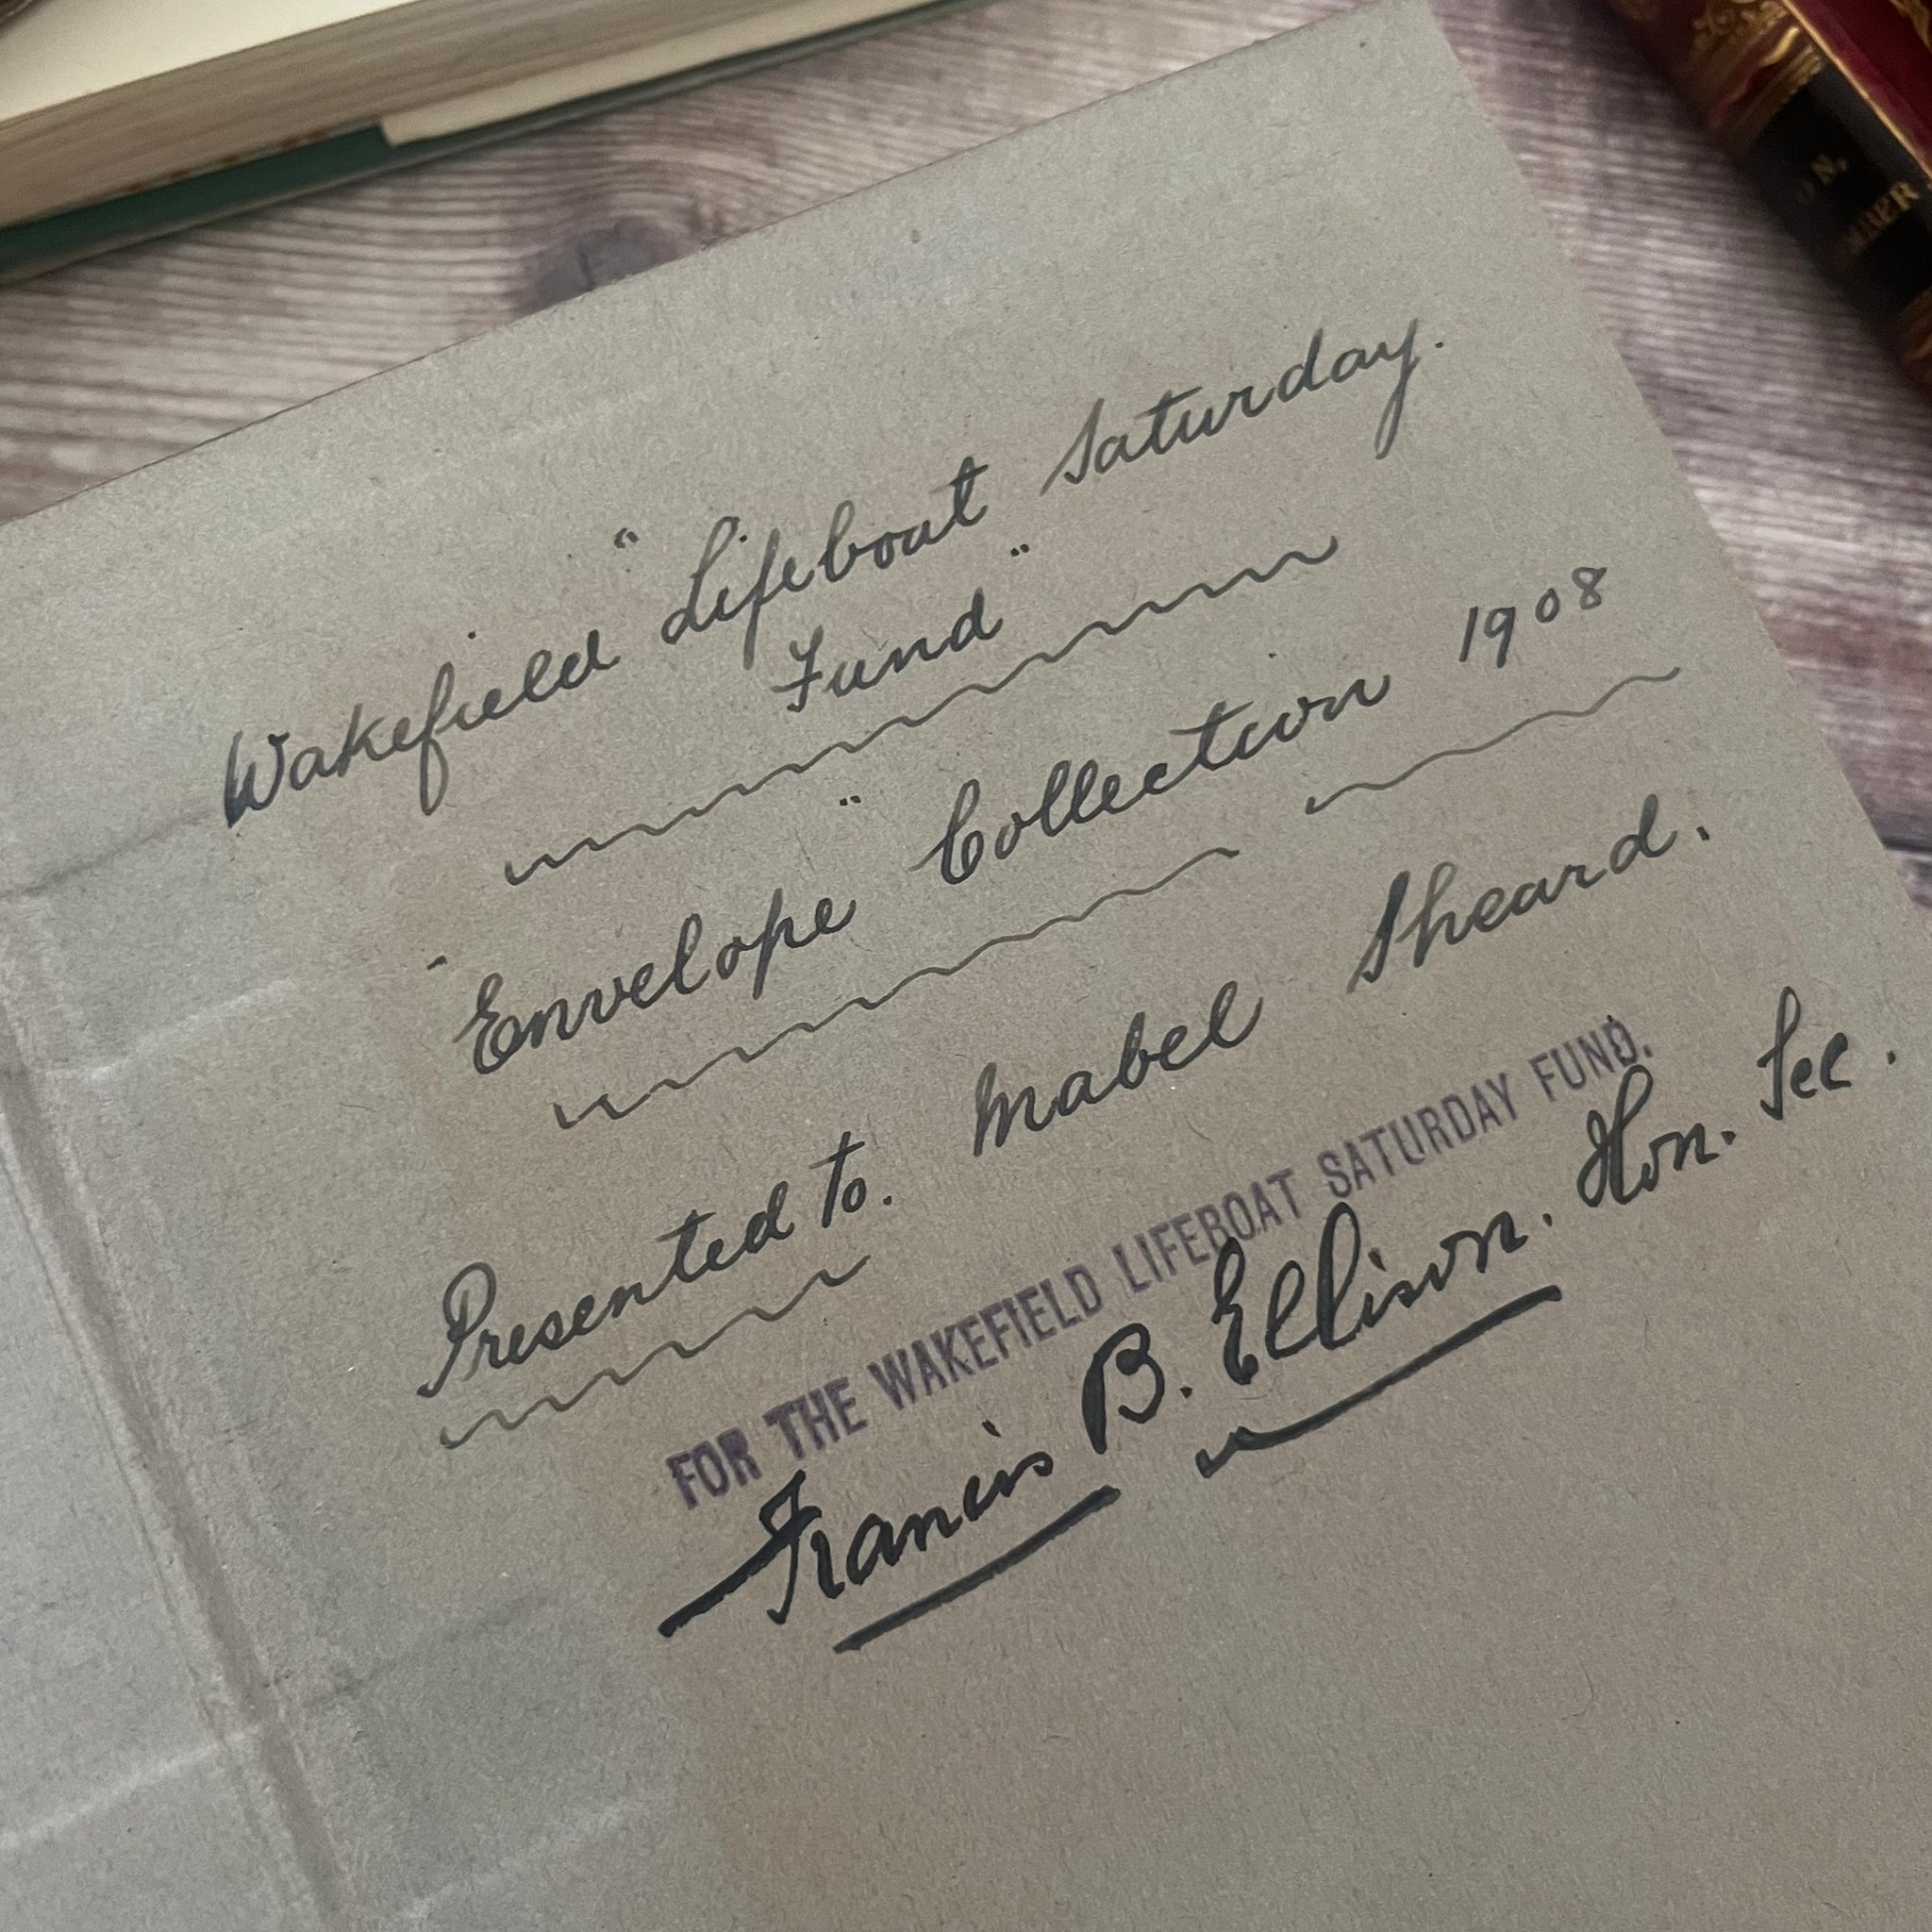 Wakefield "Lifeboat Saturday.
Fund"
"Envelope" Collection 1908
Presented to. Mabel Sheard.
FOR THE WAKEFIELD LIFEBOAT SATURDAY FUND.
Francis B. Ellison. Hon. Sec.